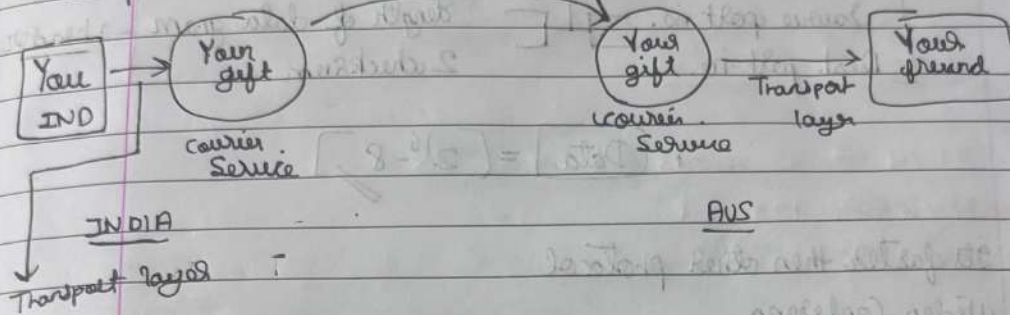 You
IND
Your
gift
Courier
Service
Your
gift
Courier
Service
Transport
layer
Your
friend
INDIA
AUS
Transport layer